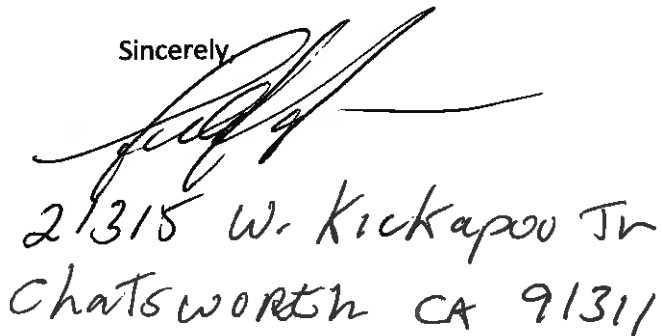 Sincerely,
21315 W. Kickapoo Tr
Chatsworth CA 91311